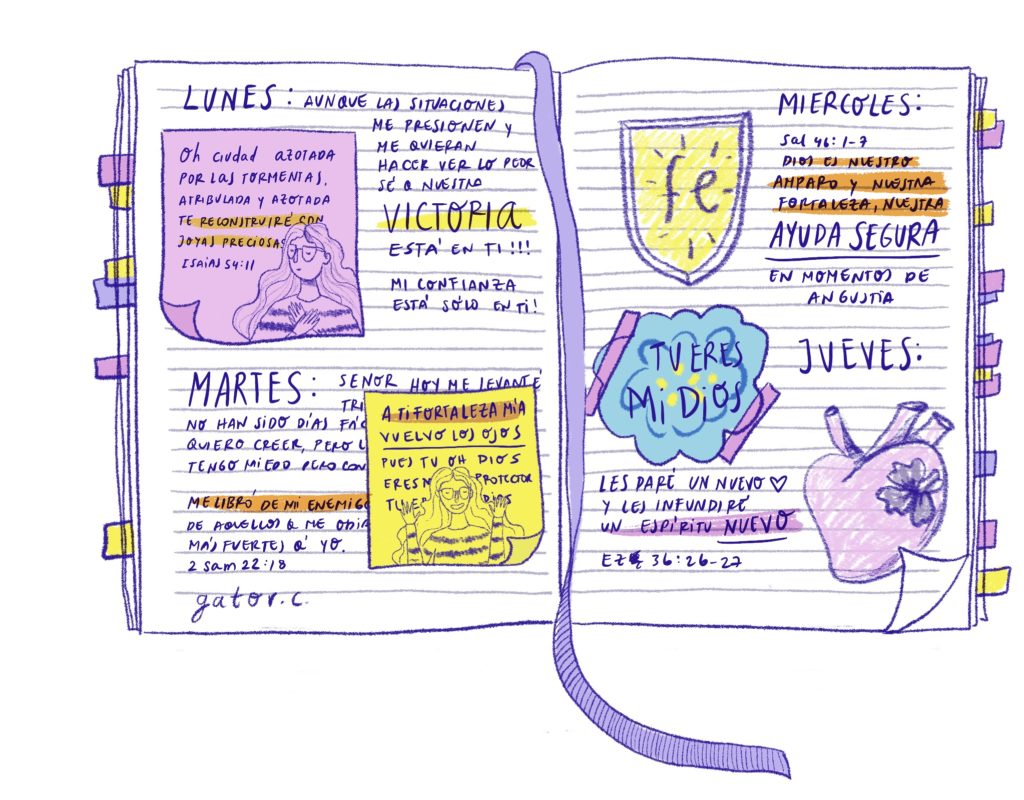 LUNES: AUNQUE LAS SITUACIONES
ME PRESIONEN Y
ME QUIERAN
HACER VER LO PEOR
SÉ Q NUESTRA
VICTORIA
ESTÁ EN TI!!!
MI CONFIANZA
ESTÁ SÓLO EN TI!
Oh ciudad AZOTADA
POR LAS TORMENTAS,
ATRIBULADA Y AZOTADA
TE RECONSTRUIRÉ CON
JOYAS PRECIOSAS
ISAIAS 54:11
MARTES: SEÑOR HOY ME LEVANTÉ
TRI
NO HAN SIDO DÍAS FÁC
QUIERO CREER, PERO
TENGO MIEDO PERO CON
ME LIBRÓ DE MI ENEMIGO
DE AQUELLOS Q ME ODIA
MÁS FUERTES Q' YO.
2 Sam 22:18
A TI FORTALEZA MÍA
VUELVO LOS OJOS
PUES TU OH DIOS
ERES M PROTECTOR
TU ER DIOS
gator.c.
MIERCOLES:
Sal 46:1-7
DIOS ES NUESTRO
AMPARO Y NUESTRA
FORTALEZA, NUESTRA
AYUDA SEGURA
EN MOMENTOS DE
ANGUSTIA
fé
TU ERES
Mi DiOS
JUEVES:
LES DARÉ UN NUEVO ♡
Y LES INFUNDIRÉ
UN ESPÍRITU NUEVO
EZ 36:26-27